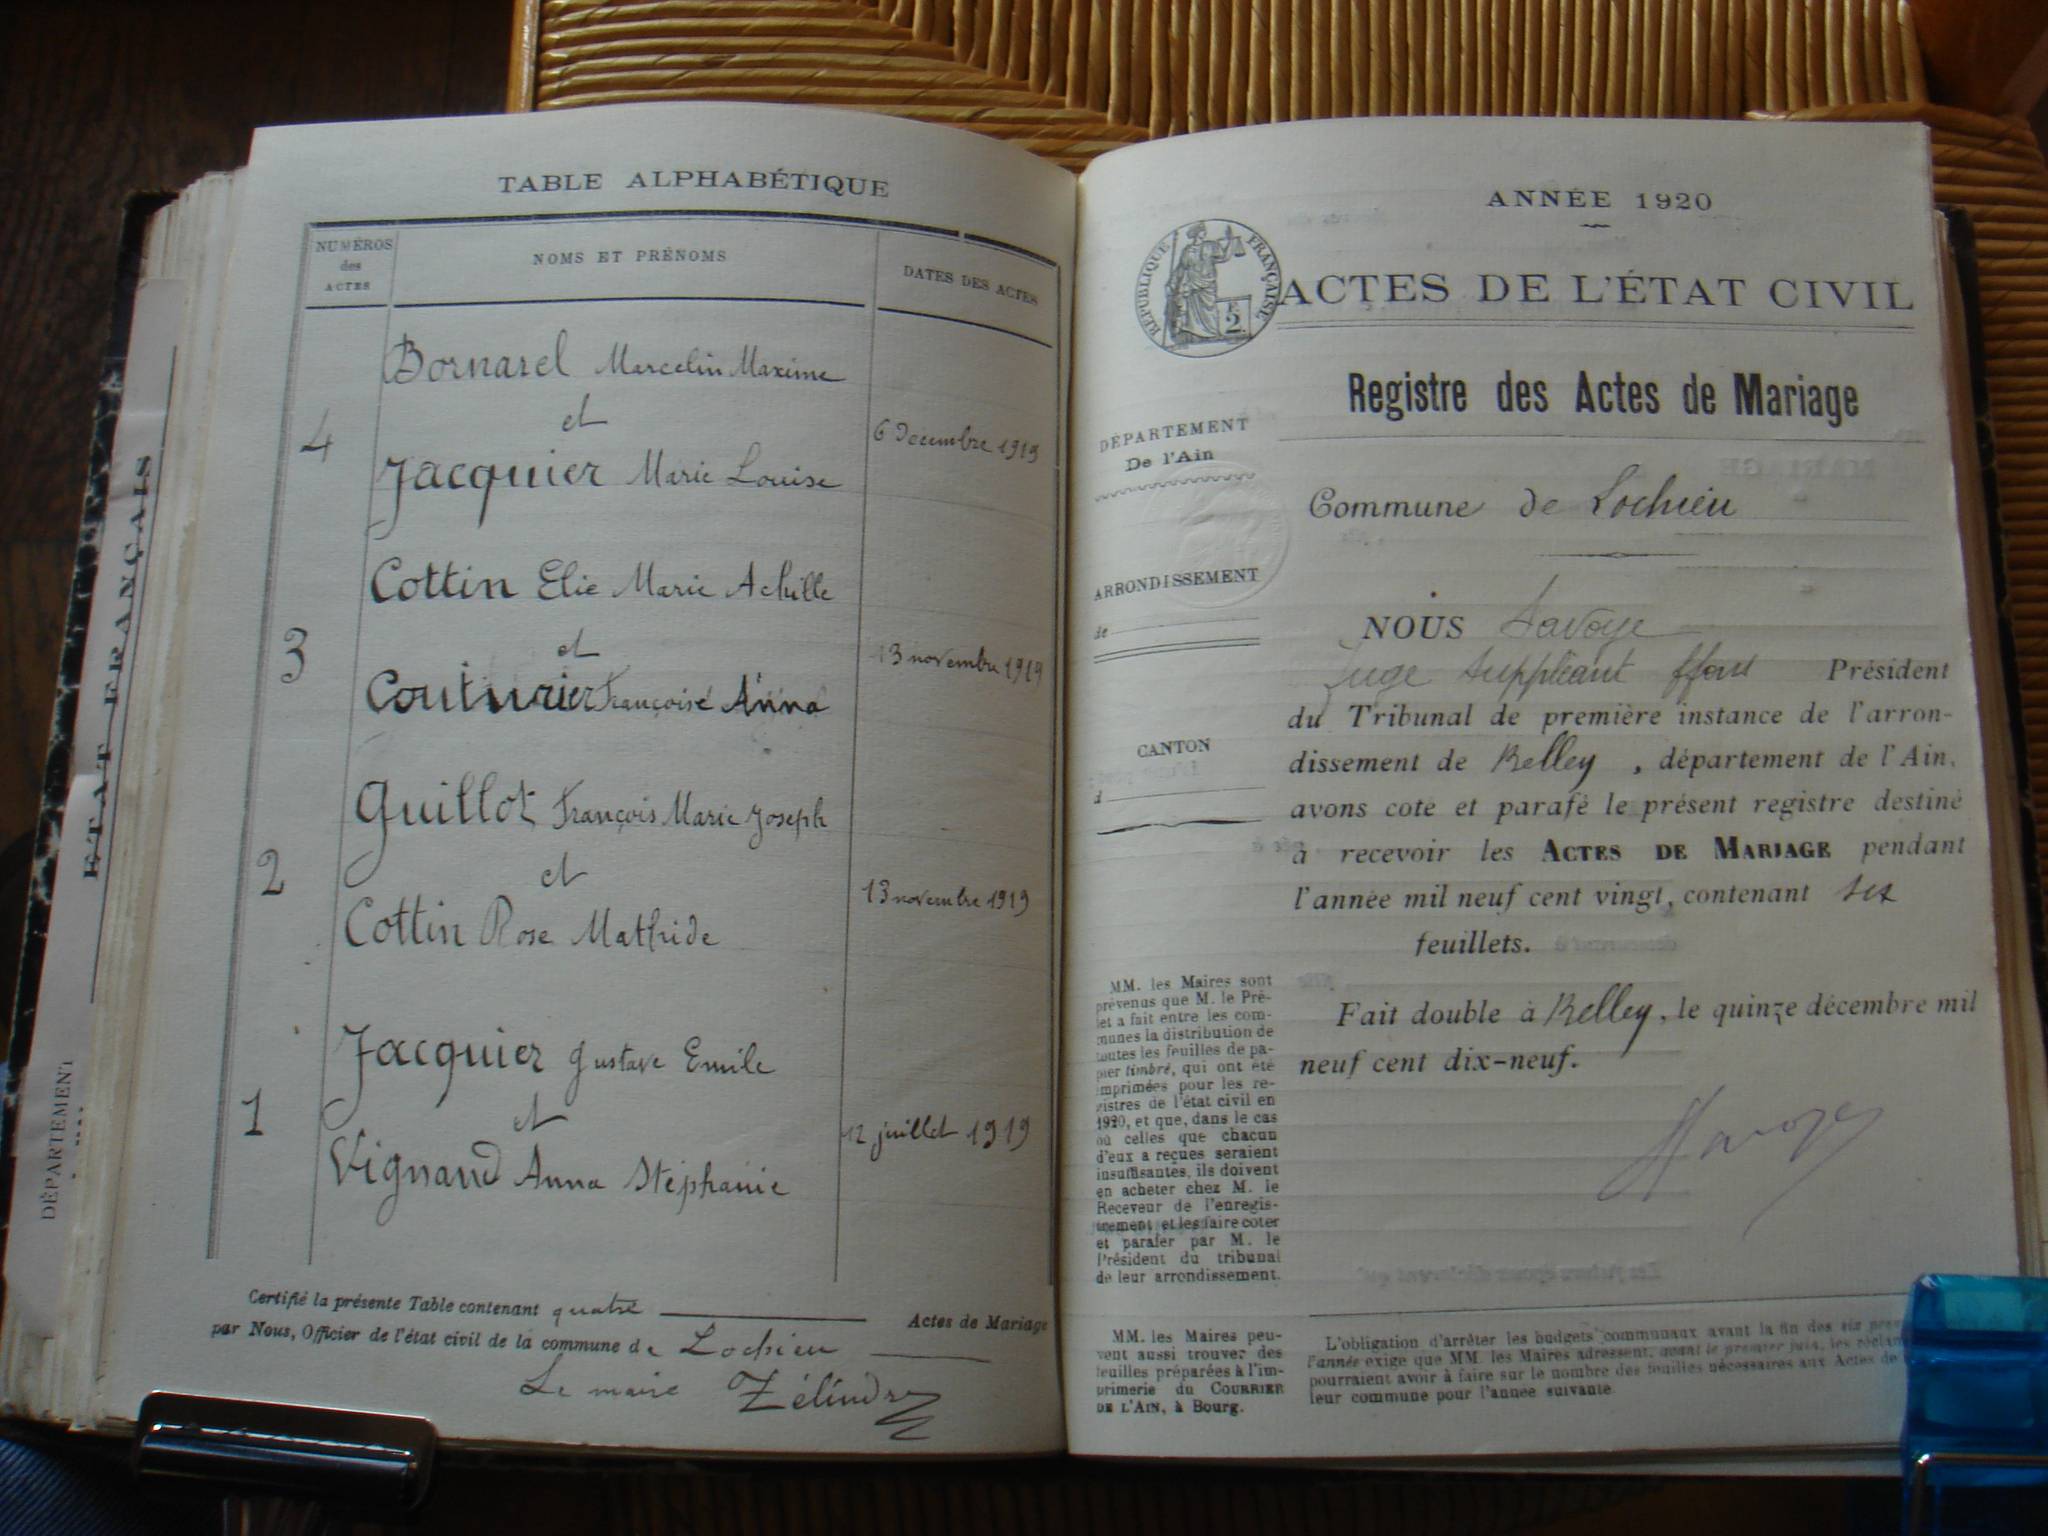 ETAT FRANÇAIS
DÉPARTEMENT
TABLE ALPHABÉTIQUE
NUMÉROS
des
ACTES
NOMS ET PRÉNOMS
DATES DES ACTES
Bornarel Marcelin Maxime
et
4
6 décembre 1919
Jacquier Marie Louise
Cottin Elie Marie Achille
3
et
13 novembre 1919
Couturier Françoise Anna
Guillot François Marie Joseph
2
et
13 novembre 1919
Cottin Rose Mathide
Jacquier Gustave Emile
1
et
12 juillet 1919
Vignand Anna Stéphanie
Certifié la présente Table contenant quatre Actes de Mariage
par Nous, Officier de l'état civil de la commune de Lochieu
Le maire Zélindre
ANNÉE 1920
RÉPUBLIQUE FRANÇAISE
2
ACTES DE L'ÉTAT CIVIL
Registre des Actes de Mariage
DÉPARTEMENT
De l'Ain
Commune de Lochieu
ARRONDISSEMENT
de
CANTON
d
NOUS Savoye
Juge suppléant ffons Président
du Tribunal de première instance de l'arron-
dissement de Belley, département de l'Ain,
avons coté et parafé le présent registre destiné
à recevoir les ACTES DE MARIAGE pendant
l'année mil neuf cent vingt, contenant six
feuillets.
Fait double à Belley, le quinze décembre mil
neuf cent dix-neuf.
Savoye
MM. les Maires sont
prévenus que M. le Pré-
fet a fait entre les com-
munes la distribution de
toutes les feuilles de pa-
pier timbré, qui ont été
imprimées pour les re-
gistres de l'état civil en
1920, et que, dans le cas
où celles que chacun
d'eux a reçues seraient
insuffisantes, ils doivent
en acheter chez M. le
Receveur de l'enregis-
trement et les faire coter
et parafer par M. le
Président du tribunal
de leur arrondissement.
MM. les Maires peu-
vent aussi trouver des
feuilles préparées à l'im-
primerie du COURRIER
DE L'AIN, à Bourg.
L'obligation d'arrêter les budgets communaux avant la fin des six
l'année exige que MM. les Maires adressent, avant le premier juin, les
pourraient avoir à faire sur le nombre des feuilles nécessaires aux Actes de
leur commune pour l'année suivante